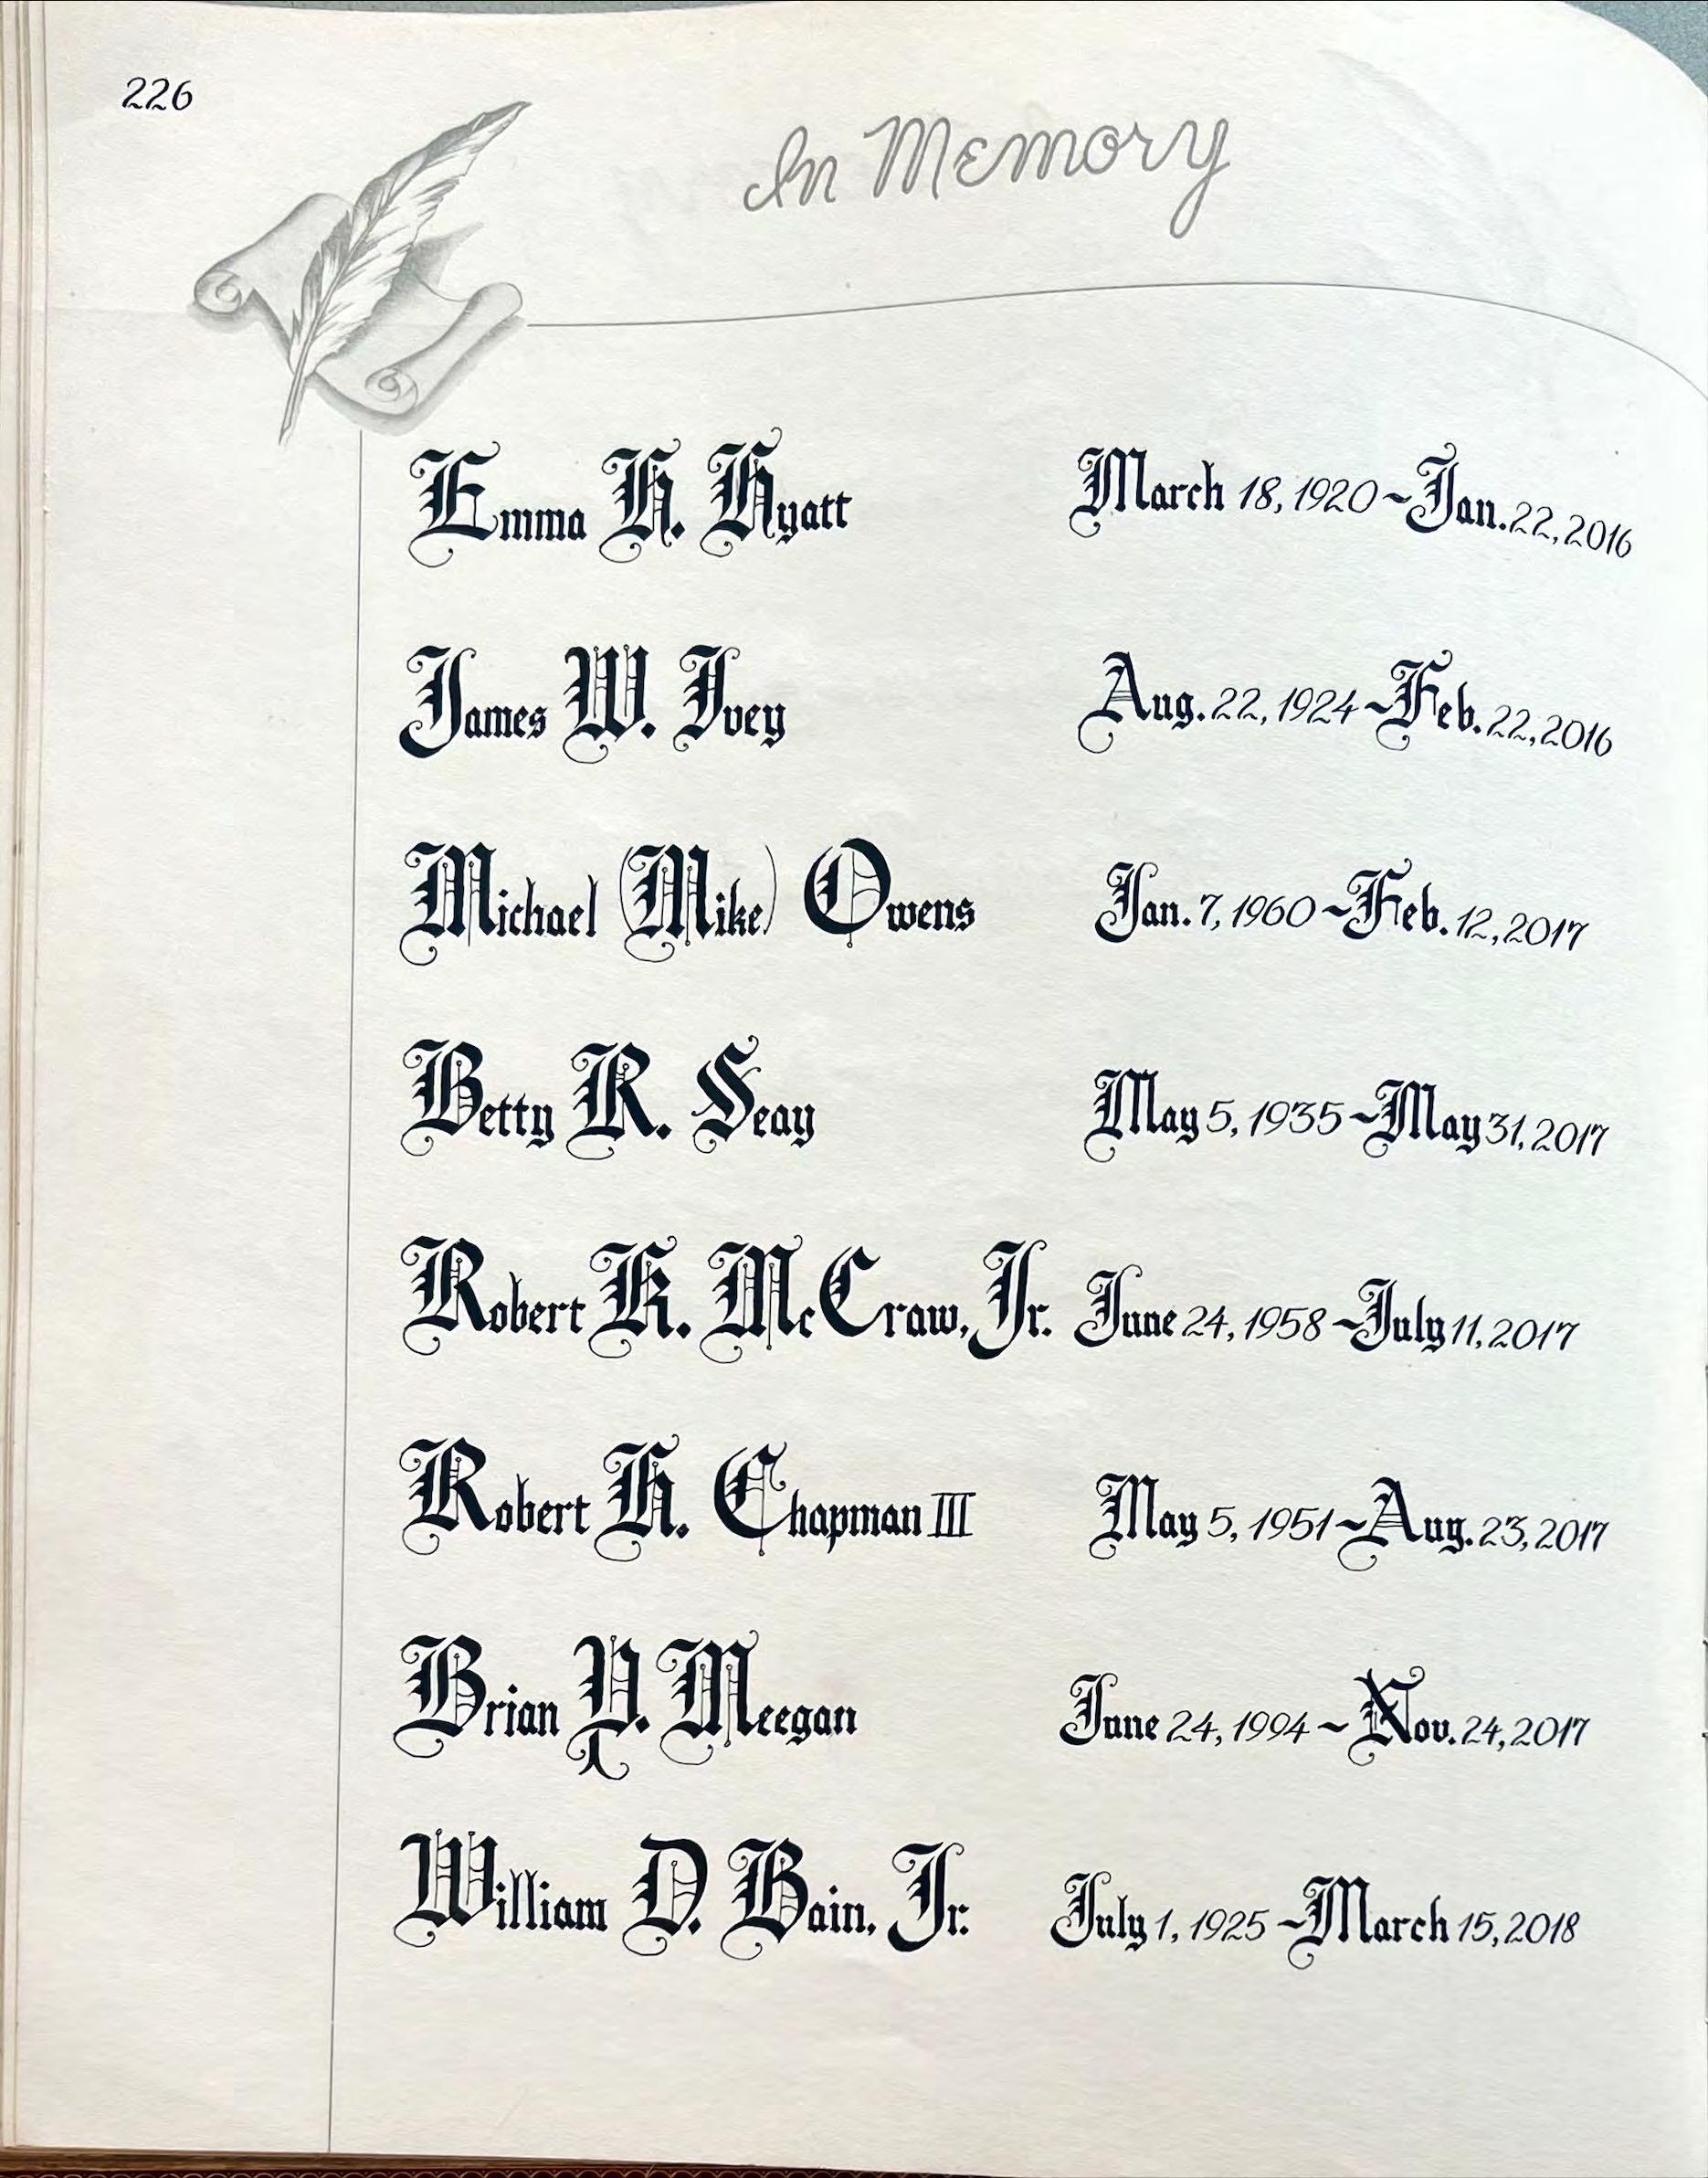 226
In Memory
Emma H. Hyatt March 18, 1920 ~ Jan. 22, 2016
James W. Ivey Aug. 22, 1924 ~ Feb. 22, 2016
Michael (Mike) Owens Jan. 7, 1960 ~ Feb. 12, 2017
Betty R. Seay May 5, 1935 ~ May 31, 2017
Robert K. McCraw, Jr. June 24, 1958 ~ July 11, 2017
Robert H. Chapman III May 5, 1951 ~ Aug. 23, 2017
Brian P. Meegan June 24, 1994 ~ Nov. 24, 2017
William D. Bain, Jr. July 1, 1925 ~ March 15, 2018